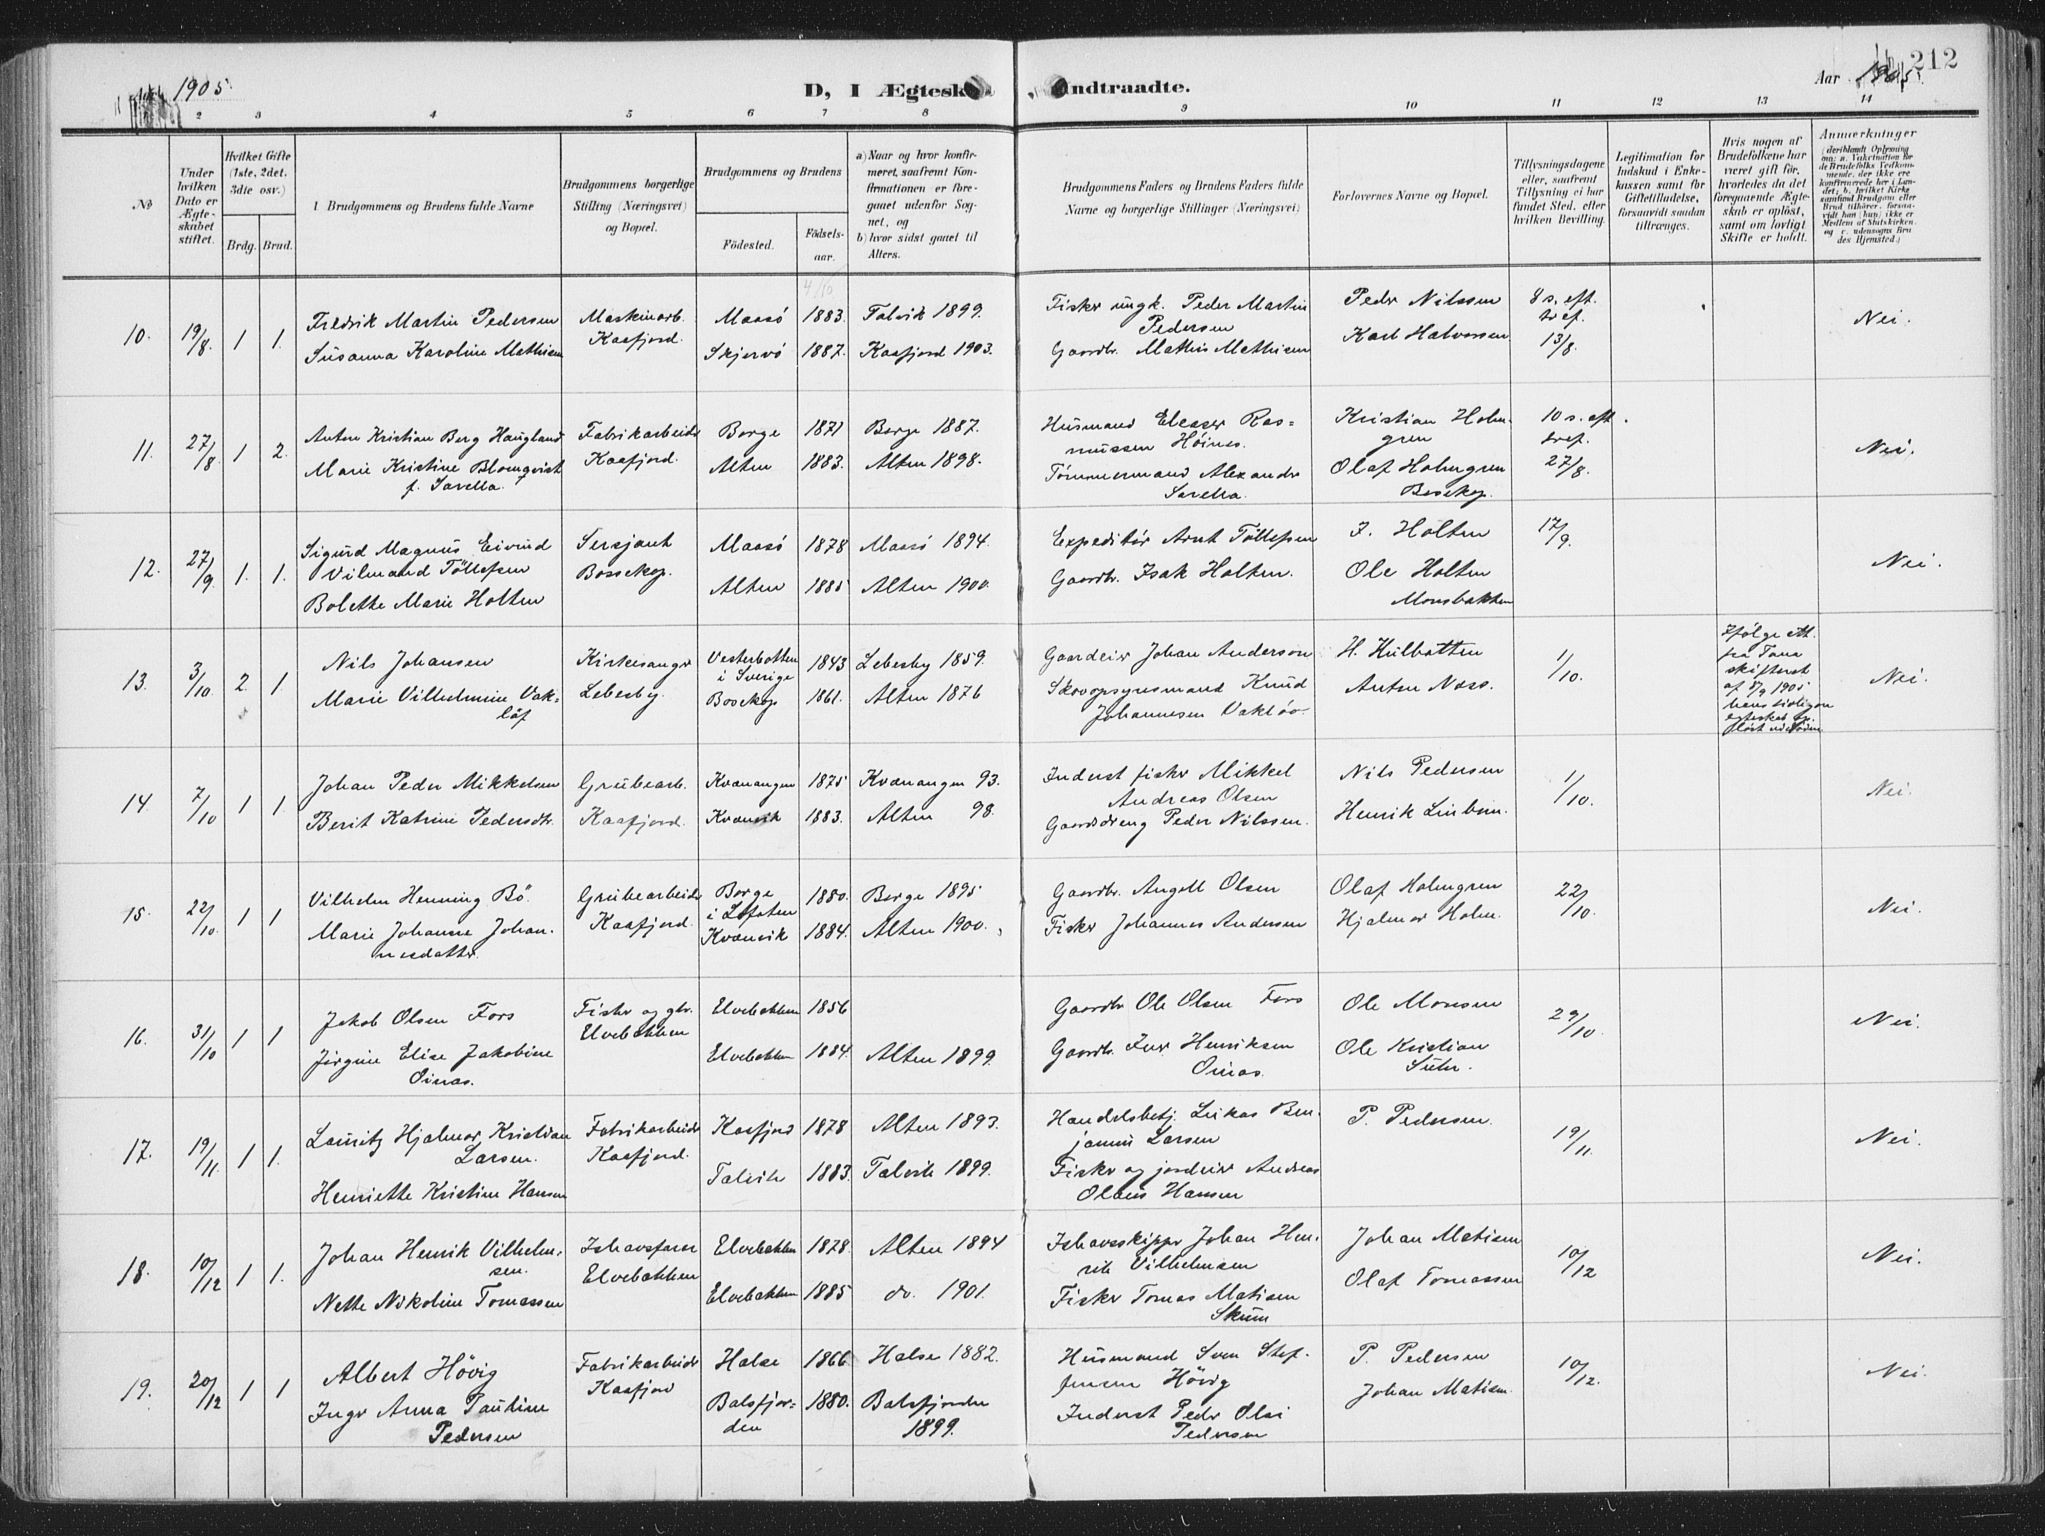 1905.
D, I Ægtesk
indtraadte.
Aar 1905.
212
2 3 4 5 6 7 8 9 10 11 12 13 14
No
Under hvilken Dato er Ægteskabet stiftet.
Hvilket Gifte (1ste, 2det, 3die osv.)
Brdg. Brud.
Brudgommens og Brudens fulde Navne
Brudgommens borgerlige Stilling (Næringsvei) og Bopæl.
Brudgommens og Brudens
Fødested.
Fødsels-aar.
a) Naar og hvor konfirmeret, saafremt Konfirmationen er foregaaet udenfor Sognet, og
b) hvor sidst gaaet til Alters.
Brudgommens Faders og Brudens Faders fulde Navne og borgerlige Stillinger (Næringsvei)
Forlovernes Navne og Bopæl.
Tillysningsdagene eller, saafremt Tillysning ei har fundet Sted, efter hvilken Bevilling.
Legitimation for Indskud i Enkekassen samt for Giftetilladelse, forsaavidt saadan tiltrænges.
Hvis nogen af Brudefolkene har været gift før, hvorledes da det foregaaende Ægteskab er opløst, samt om lovligt Skifte er holdt.
Anmerkninger
4/50
10. 19/8 1 1. Fredrik Martin Pedersen Maskinarb. Maasö 1883. Talvik 1899. Fisker ungk. Peder Martin Peder Nilssen 8 s. eft. Nei.
Kaafjord. Pedersen tref.
Susanna Karoline Mathisen Skjervö 1887. Kaafjord 1903. Gaardbr. Mathis Mathisen Karl Halvorsen 13/8.
11. 27/8 1 2. Anton Kristian Berg Haugland Fabrikarbeider Borge 1871 Borge 1887. Husmand Eleaser Ras= Kristian Holm- 10 s. eft. Nei.
mussen Höines. gren tref.
Marie Kristine Blomqvist Kaafjord. Alten 1883. Alten 1898. Tømmermand Alexander Olaf Holmgren 27/8.
f. Sarella. Sarella. Bossekop.
12. 27/9 1. 1. Sigurd Magnus Eivind Sersjant Maasö 1878 Maasö 1894. Expeditör Arnt Töllefsen I. Holten 17/9. Nei.
Vilmand Töllefsen Bossekop.
Bolette Marie Holten Alten 1885 Alten 1900. Gaardbr. Isak Holten. Ole Holten
Monsbakken
13. 3/10 2. 1. Nils Johansen Kirkesanger Vesterbotten 1843 Lebesby 1859. Gaardeier Johan Anderson H. Hulbatten 1/10. Ifølge att. Nei.
i Sverige fra Tana
Marie Vilhelmine Vak- Lebesby. Bossekop 1861. Alten 1876 Skovopsynsmand Knud Anton Næss. skifteret
löf Johannesen Vaklöv. af 8/9 1905
14. 7/10 1 1. Johan Peder Mikkelsen Grubearb. Kvænangen 1875 Kvænangen 93. Inderst fisker Mikkel Nils Pedersen 1/10. Nei.
Andreas Olsen
Berit Katrine Pedersdtr. Kaafjord. Kvænvik 1883. Alten 98. Gaarddreng Peder Nilssen. Henrik Linbom.
15. 22/10. 1 1 Vilhelm Henning Bö. Grubearbeider Borge 1880. Borge 1895 Gaardbr. Angell Olsen Olaf Holmgren 22/10. Nei.
i Lofoten
Marie Johanne Johan- Kaafjord. Kvænvik 1884. Alten 1900. Fisker Johannes Andersen Hjalmar Holm.
nesdatter.
16. 31/10 1 1 Jakob Olsen Fors Fisker og gbr. Elvebakken 1856 Gaardbr Ole Olsen Fors Ole Monsen 29/10. Nei.
Elvebakken
Jörgine Elise Jakobine Elvebakken 1884. Alten 1899. Gaardb. Iver Henriksen Ole Kristian
Oinas. Oinas. Suhr.
17. 19/11. 1 1. Lauritz Hjalmar Kristian Fabrikarbeider Kaafjord 1878 Alten 1893. Handelsbetj. Lukas Ben- P. Pedersen. 19/11. Nei.
Larsen. Kaafjord. jamin Larsen
Henriette Kristine Hansen Talvik 1883. Talvik 1899. Fisker og jordeier Andreas
Olaus Hansen
18. 10/12 1 1. Johan Henrik Vilhelm- Ishavsfarer Elvebakken 1878. Alten 1894 Ishavsskipper Johan Hen- Johan Matisen 10/12 Nei.
sen. Elvebakken rik Vilhelmsen
Nette Nikoline Tomassen Elvebakken 1885 do. 1901. Fisker Tomas Matisen Olaf Tomassen
Skum
19. 20/12 1 1 Albert Hövig Fabrikarbeider Halse 1866. Halse 1882. Husmand Sven Stef- P. Pedersen 10/12. Nei.
Kaafjord fensen Hövig
Inger Anna Pauline Balsfjor- 1880. Balsfjorden Inderst Peder Olai Johan Matisen.
Pedersen den 1899. Pedersen